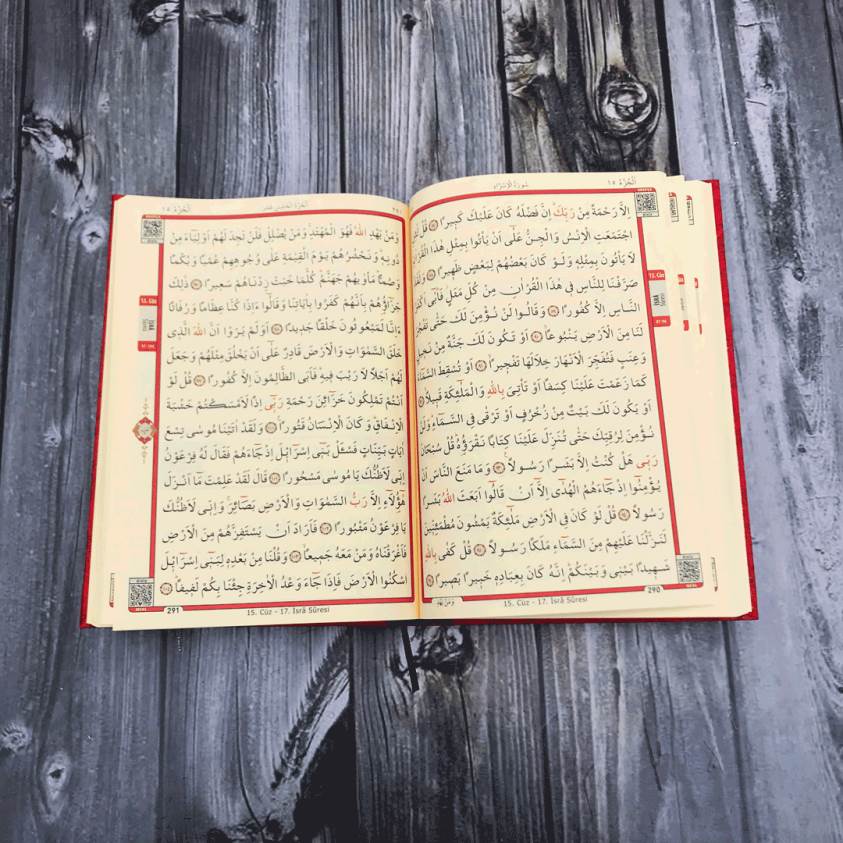 سورة الإسراء
الجزء ١٥
اِلَّا رَحْمَةً مِنْ رَبِّكَ اِنَّ فَضْلَهُ كَانَ عَلَيْكَ كَبِيرًا قُلْ لَئِنِ
اجْتَمَعَتِ الْاِنْسُ وَالْجِنُّ عَلٰٓى اَنْ يَأْتُوا بِمِثْلِ هٰذَا الْقُرْاٰنِ
لَا يَأْتُونَ بِمِثْلِهٖ وَلَوْ كَانَ بَعْضُهُمْ لِبَعْضٍ ظَهِيرًا وَلَقَدْ
صَرَّفْنَا لِلنَّاسِ فٖى هٰذَا الْقُرْاٰنِ مِنْ كُلِّ مَثَلٍ فَاَبٰٓى اَكْثَرُ
النَّاسِ اِلَّا كُفُورًا وَقَالُوا لَنْ نُؤْمِنَ لَكَ حَتّٰى تَفْجُرَ
لَنَا مِنَ الْاَرْضِ يَنْبُوعًا اَوْ تَكُونَ لَكَ جَنَّةٌ مِنْ نَخِيلٍ
وَعِنَبٍ فَتُفَجِّرَ الْاَنْهَارَ خِلَالَهَا تَفْجِيرًا اَوْ تُسْقِطَ السَّمَٓاءَ
كَمَا زَعَمْتَ عَلَيْنَا كِسَفًا اَوْ تَأْتِىَ بِاللّٰهِ وَالْمَلٰٓئِكَةِ قَبِيلًا
اَوْ يَكُونَ لَكَ بَيْتٌ مِنْ زُخْرُفٍ اَوْ تَرْقٰى فِى السَّمَٓاءِ وَلَنْ
نُؤْمِنَ لِرُقِيِّكَ حَتّٰى تُنَزِّلَ عَلَيْنَا كِتَابًا نَقْرَؤُهُ قُلْ سُبْحَانَ
رَبّٖى هَلْ كُنْتُ اِلَّا بَشَرًا رَسُولًا وَمَا مَنَعَ النَّاسَ اَنْ
يُؤْمِنُٓوا اِذْ جَٓاءَهُمُ الْهُدٰٓى اِلَّٓا اَنْ قَالُٓوا اَبَعَثَ اللّٰهُ بَشَرًا
رَسُولًا قُلْ لَوْ كَانَ فِى الْاَرْضِ مَلٰٓئِكَةٌ يَمْشُونَ مُطْمَئِنّٖينَ
لَنَزَّلْنَا عَلَيْهِمْ مِنَ السَّمَٓاءِ مَلَكًا رَسُولًا قُلْ كَفٰى بِاللّٰهِ
شَهِيدًا بَيْنٖى وَبَيْنَكُمْ اِنَّهُ كَانَ بِعِبَادِهٖ خَبِيرًا بَصِيرًا
290
15. Cüz - 17. İsrâ Sûresi
الجزء ١٥
وَمَنْ يَهْدِ اللّٰهُ فَهُوَ الْمُهْتَدِ وَمَنْ يُضْلِلْ فَلَنْ تَجِدَ لَهُمْ اَوْلِيَٓاءَ مِنْ
دُونِهٖ وَنَحْشُرُهُمْ يَوْمَ الْقِيٰمَةِ عَلٰى وُجُوهِهِمْ عُمْيًا وَبُكْمًا
وَصُمًّا مَأْوٰيهُمْ جَهَنَّمُ كُلَّمَا خَبَتْ زِدْنَاهُمْ سَعِيرًا ذٰلِكَ
جَزَٓاؤُهُمْ بِاَنَّهُمْ كَفَرُوا بِاٰيَاتِنَا وَقَالُٓوا ءَاِذَا كُنَّا عِظَامًا وَرُفَاتًا
ءَاِنَّا لَمَبْعُوثُونَ خَلْقًا جَدِيدًا اَوَلَمْ يَرَوْا اَنَّ اللّٰهَ الَّذٖى
خَلَقَ السَّمٰوَاتِ وَالْاَرْضَ قَادِرٌ عَلٰٓى اَنْ يَخْلُقَ مِثْلَهُمْ وَجَعَلَ
لَهُمْ اَجَلًا لَا رَيْبَ فٖيهِ فَاَبَى الظَّالِمُونَ اِلَّا كُفُورًا قُلْ لَوْ
اَنْتُمْ تَمْلِكُونَ خَزَٓائِنَ رَحْمَةِ رَبّٖٓى اِذًا لَاَمْسَكْتُمْ خَشْيَةَ
الْاِنْفَاقِ وَكَانَ الْاِنْسَانُ قَتُورًا وَلَقَدْ اٰتَيْنَا مُوسٰى تِسْعَ
اٰيَاتٍ بَيِّنَاتٍ فَسْـَٔلْ بَنٖٓى اِسْرَٓائٖلَ اِذْ جَٓاءَهُمْ فَقَالَ لَهُ فِرْعَوْنُ
اِنّٖى لَاَظُنُّكَ يَا مُوسٰى مَسْحُورًا قَالَ لَقَدْ عَلِمْتَ مَٓا اَنْزَلَ
هٰٓؤُلَٓاءِ اِلَّا رَبُّ السَّمٰوَاتِ وَالْاَرْضِ بَصَٓائِرَ وَاِنّٖى لَاَظُنُّكَ
يَا فِرْعَوْنُ مَثْبُورًا فَاَرَادَ اَنْ يَسْتَفِزَّهُمْ مِنَ الْاَرْضِ
فَاَغْرَقْنَاهُ وَمَنْ مَعَهُ جَمِيعًا وَقُلْنَا مِنْ بَعْدِهٖ لِبَنٖٓى اِسْرَٓائٖلَ
اسْكُنُوا الْاَرْضَ فَاِذَا جَٓاءَ وَعْدُ الْاٰخِرَةِ جِئْنَا بِكُمْ لَفِيفًا
291
15. Cüz - 17. İsrâ Sûresi